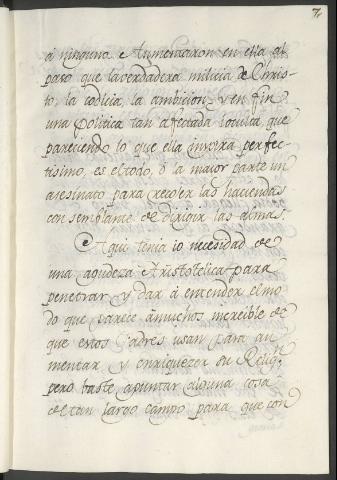 7
a ninguna e Aumentaron en ella al
paso que la verdadera milicia de Chris-
to, la codicia, la ambicion, y en fin
una politica tan afectada i oculta, que
pareciendo lo que ella invoca perfec-
tisimo, es el todo, ò la maior parte un
asesinato para recojer las haciendas
con semblante de dirigir las almas.
Aqui tenia io necesidad de
una agudeza Aristotelica para
penetrar y dar à entender el mo
do que parece à muchos increible de
que estos Padres usan para au
mentar y enriquezer su Relig.
pero baste apuntar alguna cosa
de tan largo campo para que con